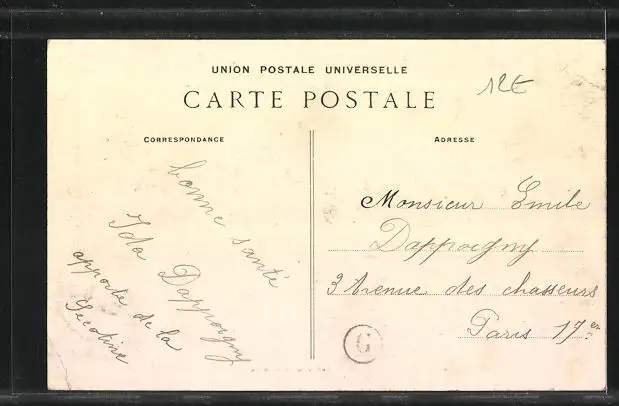 UNION POSTALE UNIVERSELLE
12E
CARTE POSTALE
CORRESPONDANCE
ADRESSE
bonne santé
Ida Dappoigny
apporte de la
Secotine
Monsieur Emile
Dappoigny
3 Avenue des chasseurs
Paris 17er
G